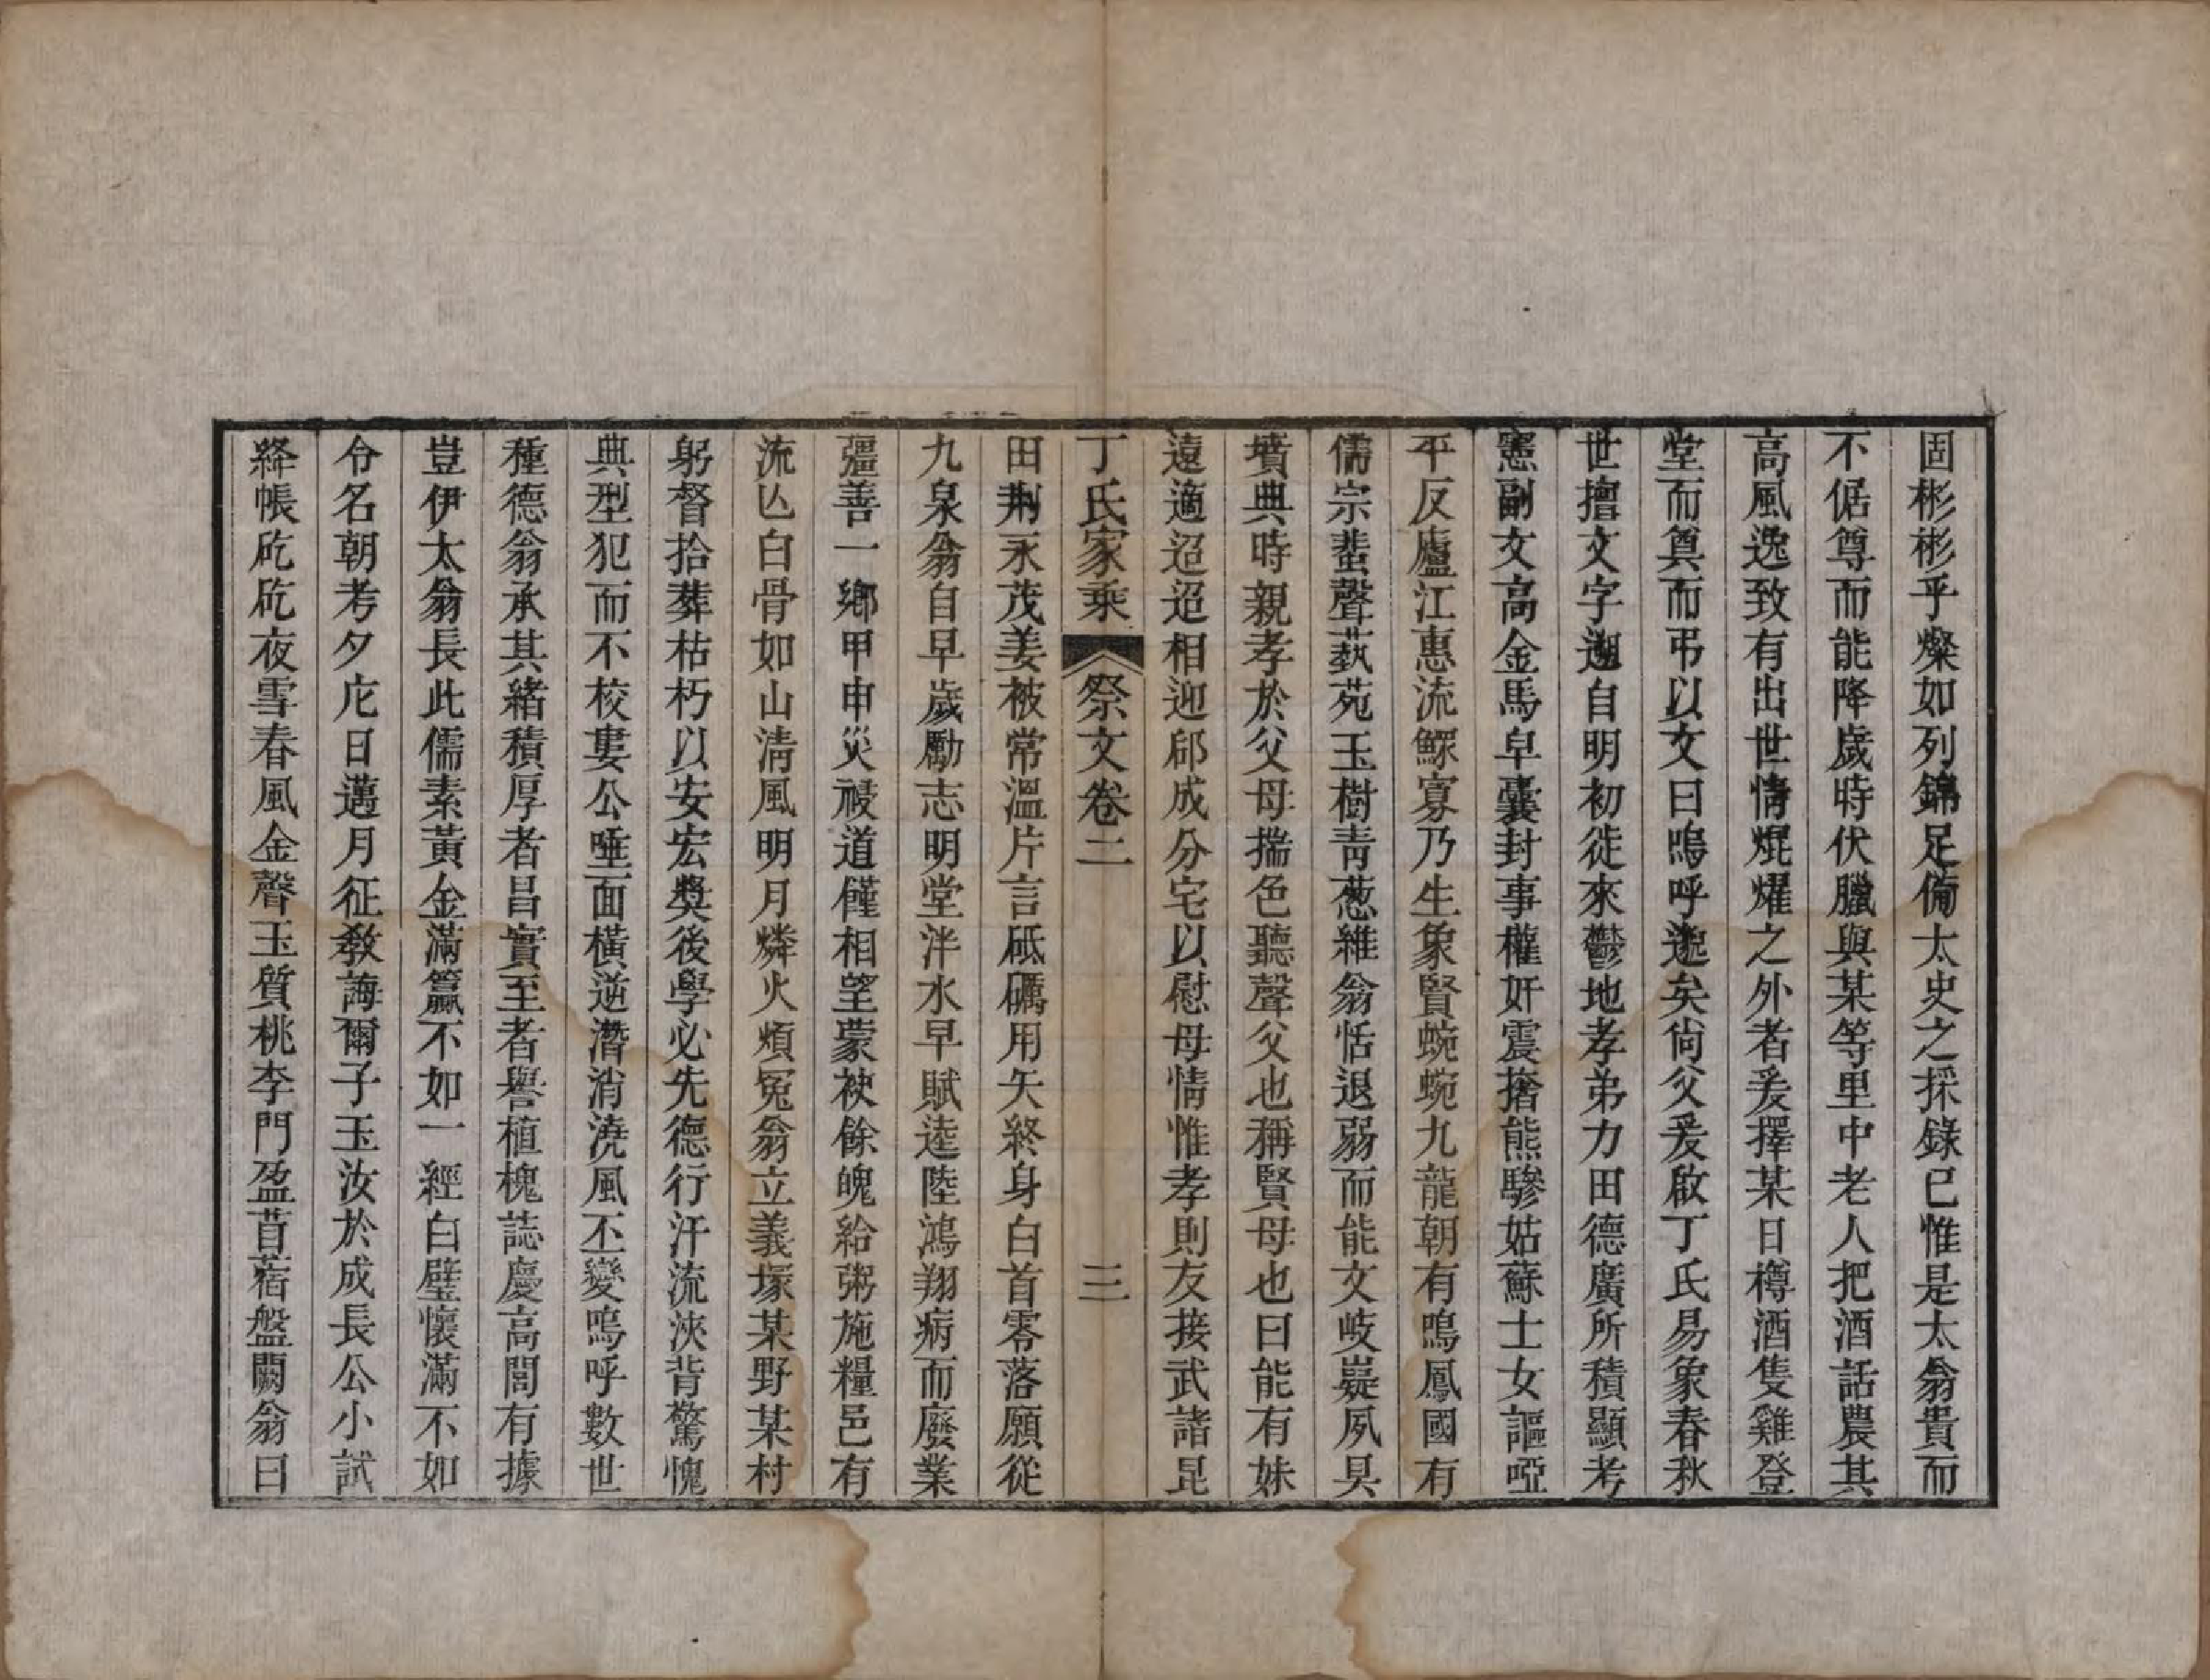 固彬彬乎燦如列錦足備太史之採錄已惟是太翁貴而
不倨尊而能降歲時伏臘與某等里中老人把酒話農其
高風逸致有出世情焜燿之外者爰擇某日樽酒隻雞登
堂而奠而弔以文曰嗚呼邈矣尙父爰啟丁氏易象春秋
世擅文字遡自明初徙來鬱地孝弟力田德廣所積顯考
憲副文高金馬皁囊封事權奸震撦熊驂姑蘇士女謳啞
平反廬江惠流鰥寡乃生象賢蜿蜿九龍朝有鳴鳳國有
儒宗蜚聲蓺苑玉樹靑葱維翁恬退弱而能文岐嶷夙具
墳典時親孝於父母揣色聽聲父也稱賢母也曰能有妹
遠適迢迢相迎郈成分宅以慰母情惟孝則友接武諸昆
丁氏家乘 祭文卷二 三
田荆永茂姜被常溫片言砥礪用矢終身白首零落願從
九泉翁自早歲勵志明堂泮水早賦逵陸鴻翔病而廢業
彊善一鄉甲申災祲道饉相望蒙袂餘魄給粥施糧邑有
流亾白骨如山淸風明月燐火煩冤翁立義塚某野某村
躬督拾葬枯朽以安宏獎後學必先德行汗流浹背驚愧
典型犯而不校婁公唾面橫逆潛消澆風丕變嗚呼數世
種德翁承其緒積厚者昌實至者譽植槐誌慶高閎有據
豈伊太翁長此儒素黃金滿籝不如一經白璧懷滿不如
令名朝考夕庀日邁月征敎誨爾子玉汝於成長公小試
絳帳矻矻夜雪春風金聲玉質桃李門盈苜蓿盤闌翁曰